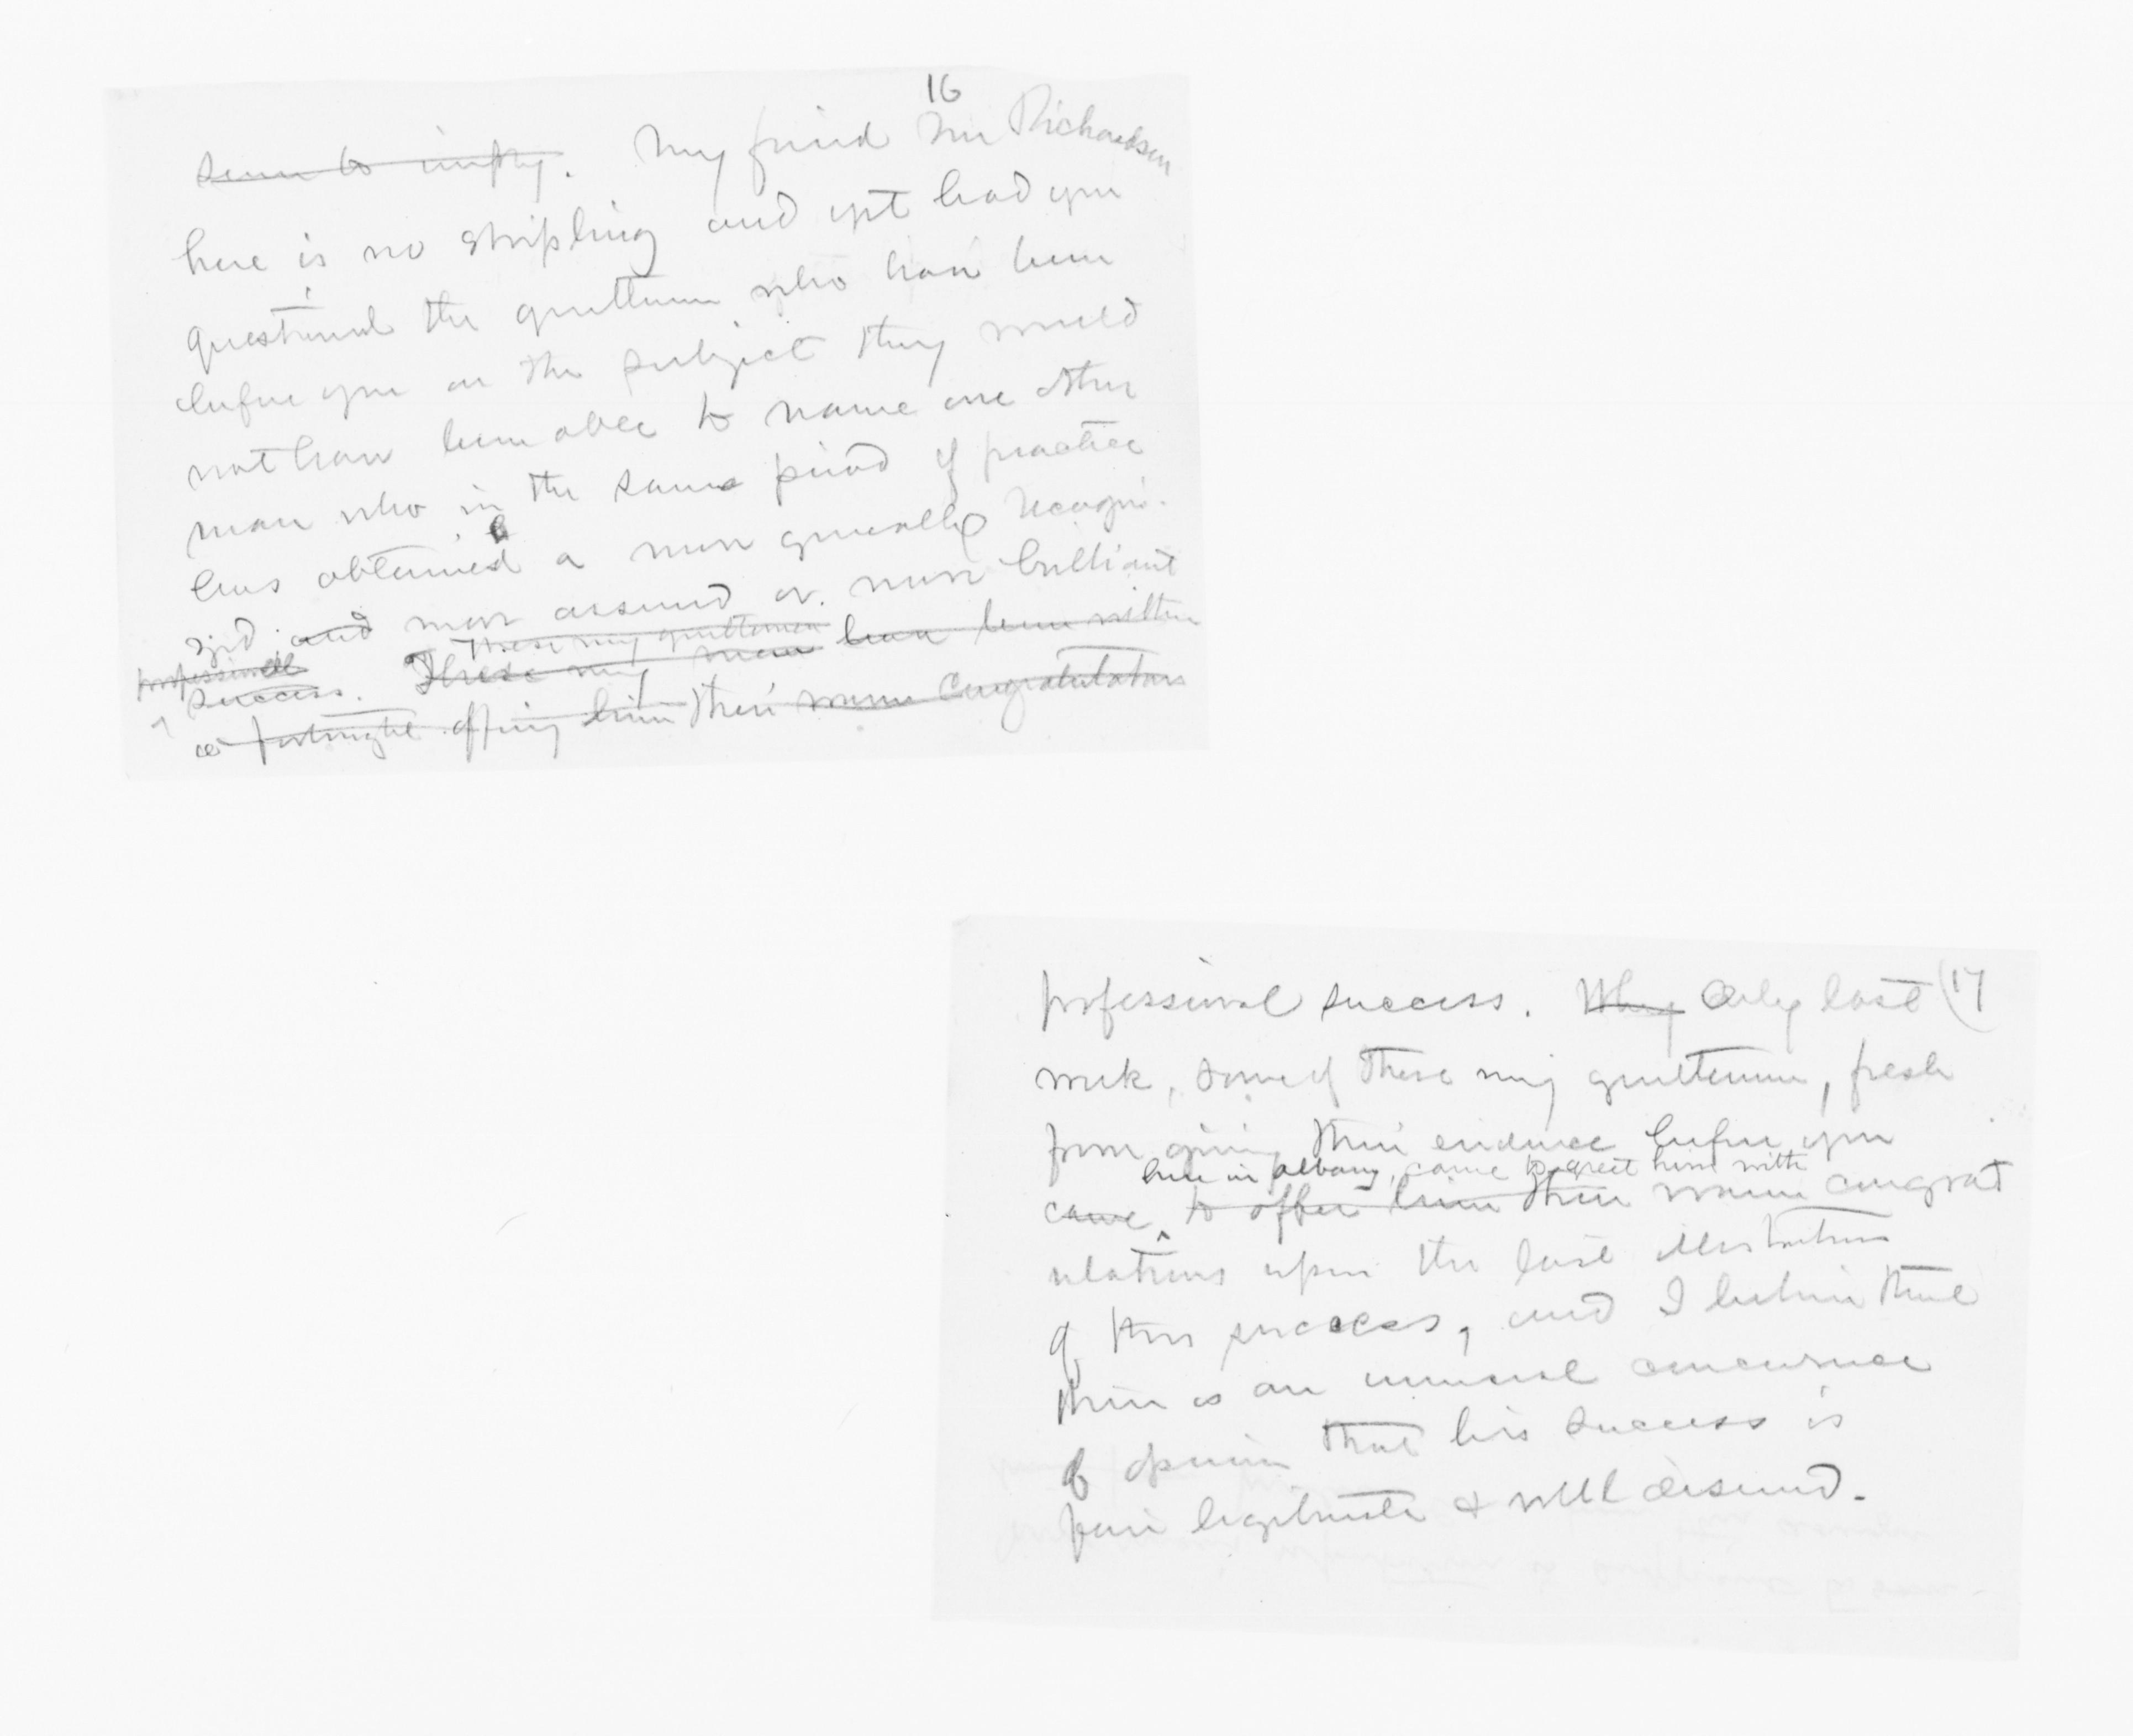 16
seem to imply. My friend Mr Richardson
here is no stripling and yet had you
questioned the gentlemen who have been
before you on the subject they would
not have been able to name one other
man who in the same period of practice
has obtained a more generally recogni-
zed and more assured or more brilliant
These very gentlemen
professional
success. These very men have been within
a fortnight offering him their warm congratulations
professional success. Why Only last (17
week, some of these very gentlemen, fresh
from giving their evidence before you
here in Albany, came to greet him with
came to offer him their warm congrat
ulations upon the last illustration
of this success, and I believe that
there is an unusual concurrence
of opinion that his success is
fair legitimate & well deserved.